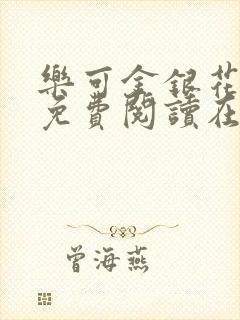 樂可金銀花
免費閱讀在
曾海燕